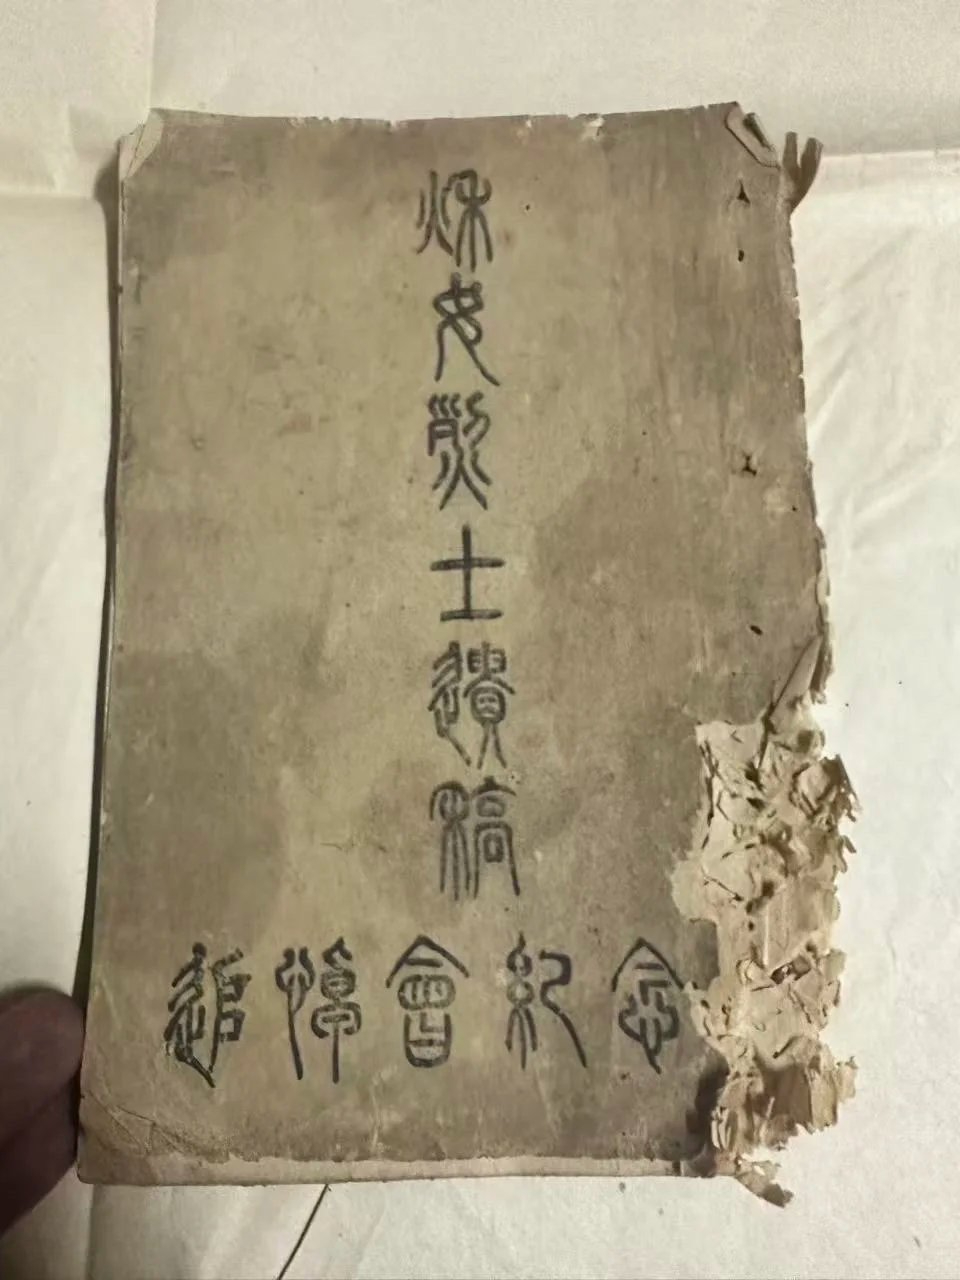 秋女烈士遺稿
追悼會紀念